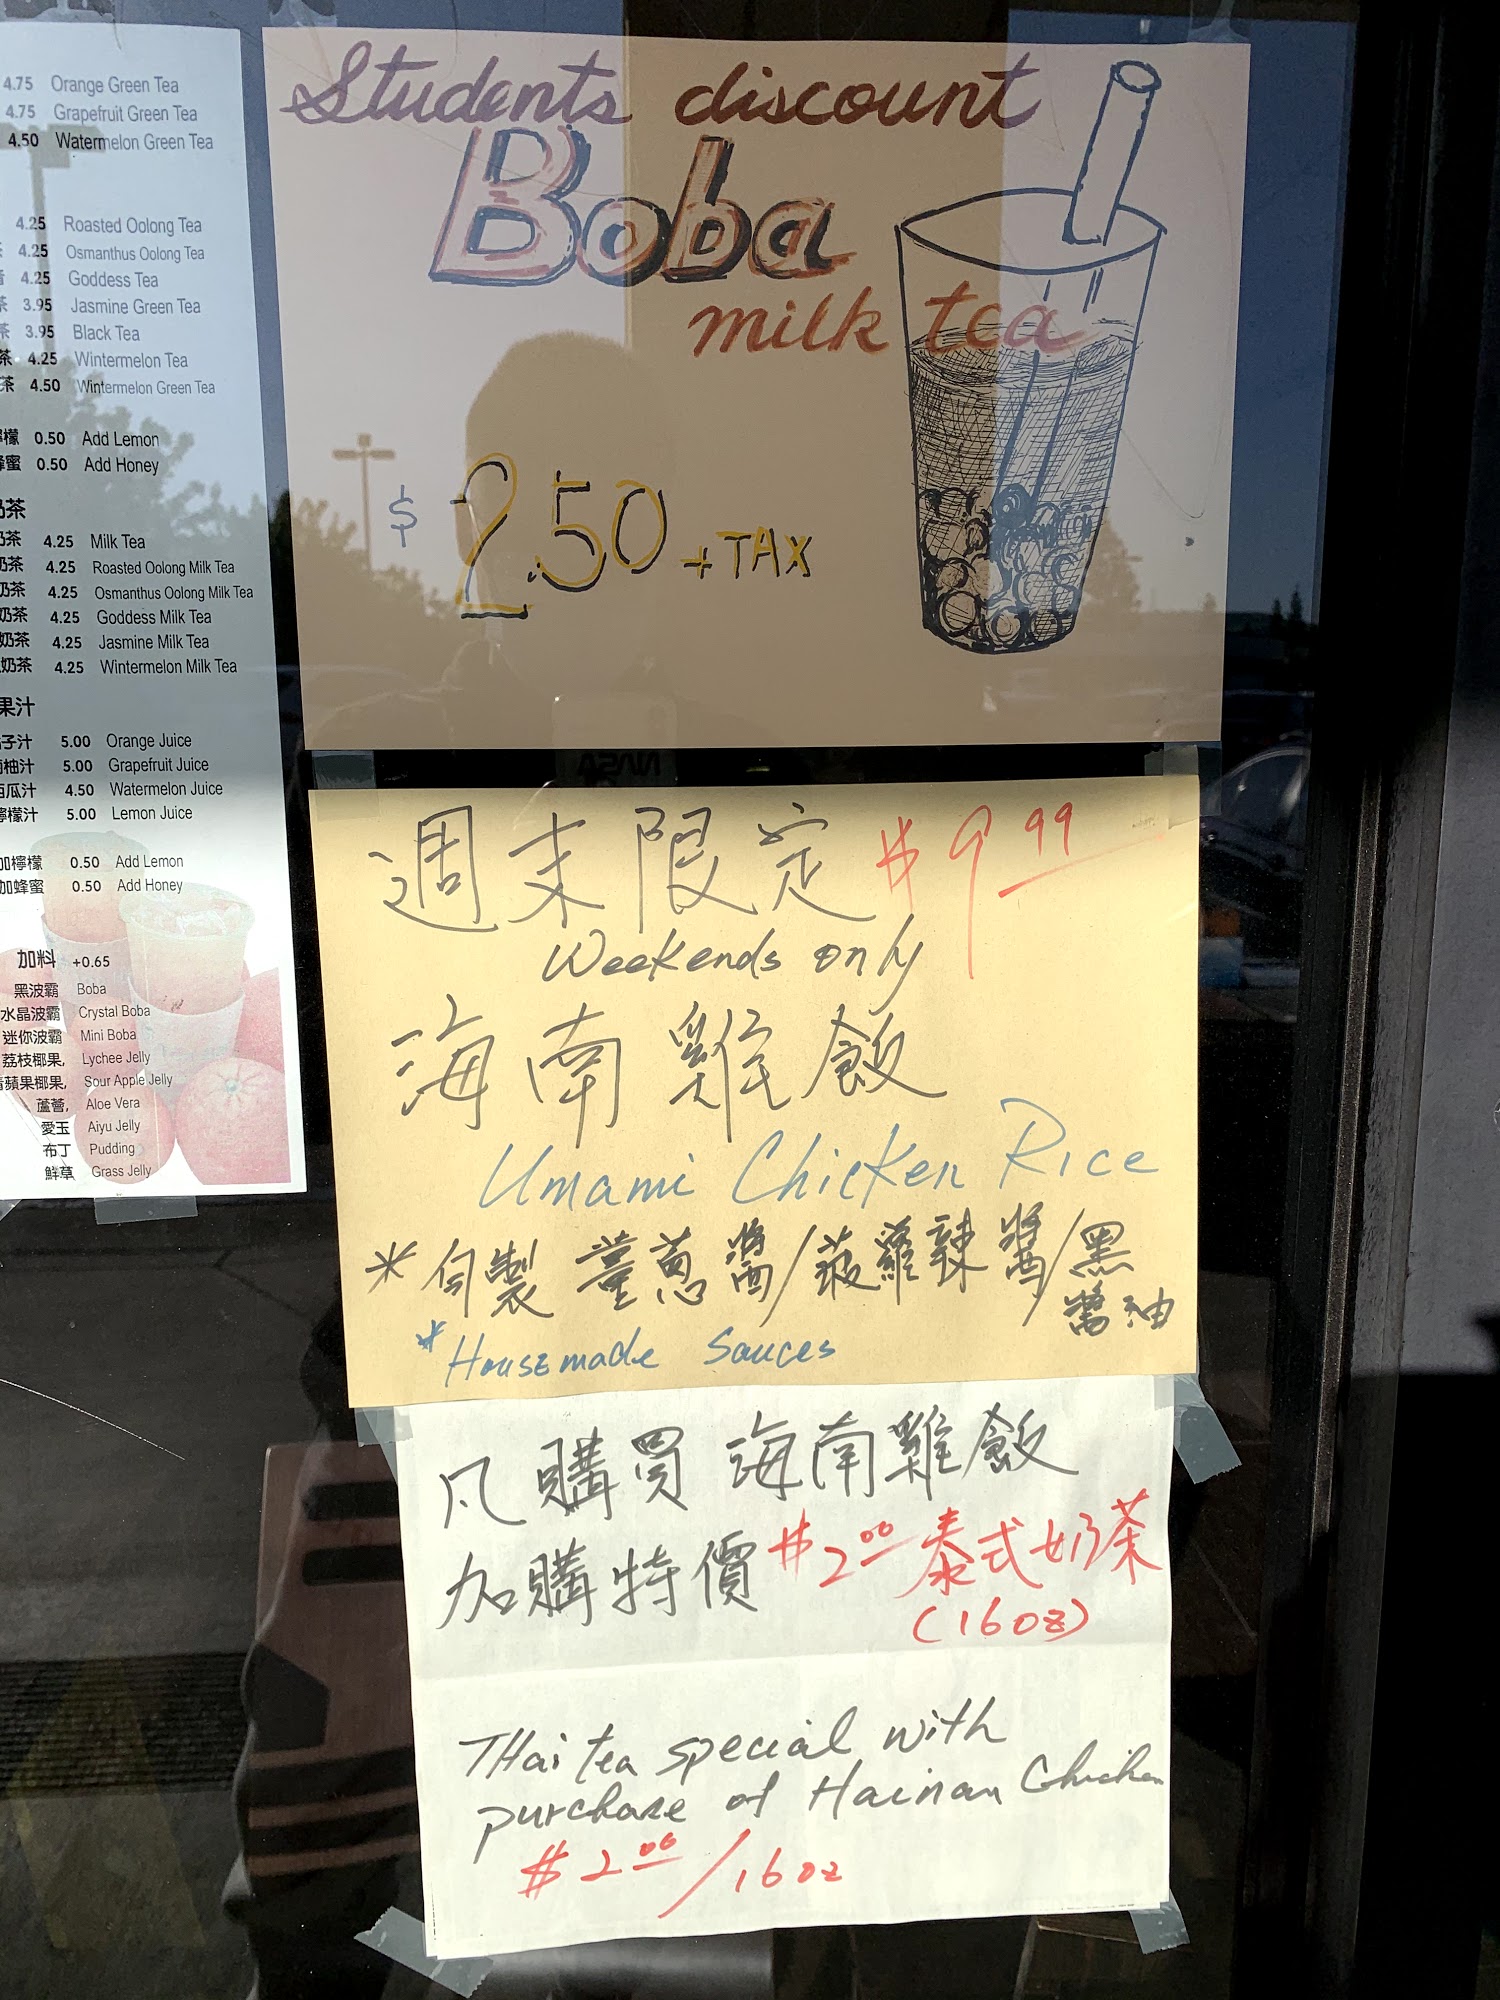 4.75 Orange Green Tea
4.75 Grapefruit Green Tea
4.50 Watermelon Green Tea
4.25 Roasted Oolong Tea
茶 4.25 Osmanthus Oolong Tea
4.25 Goddess Tea
茶 3.95 Jasmine Green Tea
茶 3.95 Black Tea
茶 4.25 Wintermelon Tea
茶 4.50 Wintermelon Green Tea
檸檬 0.50 Add Lemon
蜂蜜 0.50 Add Honey
奶茶
奶茶 4.25 Milk Tea
奶茶 4.25 Roasted Oolong Milk Tea
奶茶 4.25 Osmanthus Oolong Milk Tea
奶茶 4.25 Goddess Milk Tea
奶茶 4.25 Jasmine Milk Tea
奶茶 4.25 Wintermelon Milk Tea
果汁
子汁 5.00 Orange Juice
柚汁 5.00 Grapefruit Juice
西瓜汁 4.50 Watermelon Juice
檸檬汁 5.00 Lemon Juice
加檸檬 0.50 Add Lemon
加蜂蜜 0.50 Add Honey
加料 +0.65
黑波霸 Boba
水晶波霸 Crystal Boba
迷你波霸 Mini Boba
荔枝椰果, Lychee Jelly
青蘋果椰果, Sour Apple Jelly
蘆薈, Aloe Vera
愛玉 Aiyu Jelly
布丁 Pudding
鮮草 Grass Jelly
Students discount
Boba
milk tea
$2.50 + TAX
週末限定 $9.99
Weekends only
海南雞飯
Umami Chicken Rice
*自製薑蔥醬/菠蘿辣醬/黑
醬油
*Housemade Sauces
凡購買海南雞飯
加購特價 $2.00 泰式奶茶
(16oz)
THai tea special with
purchase of Hainan Chicken
$2.00/16oz